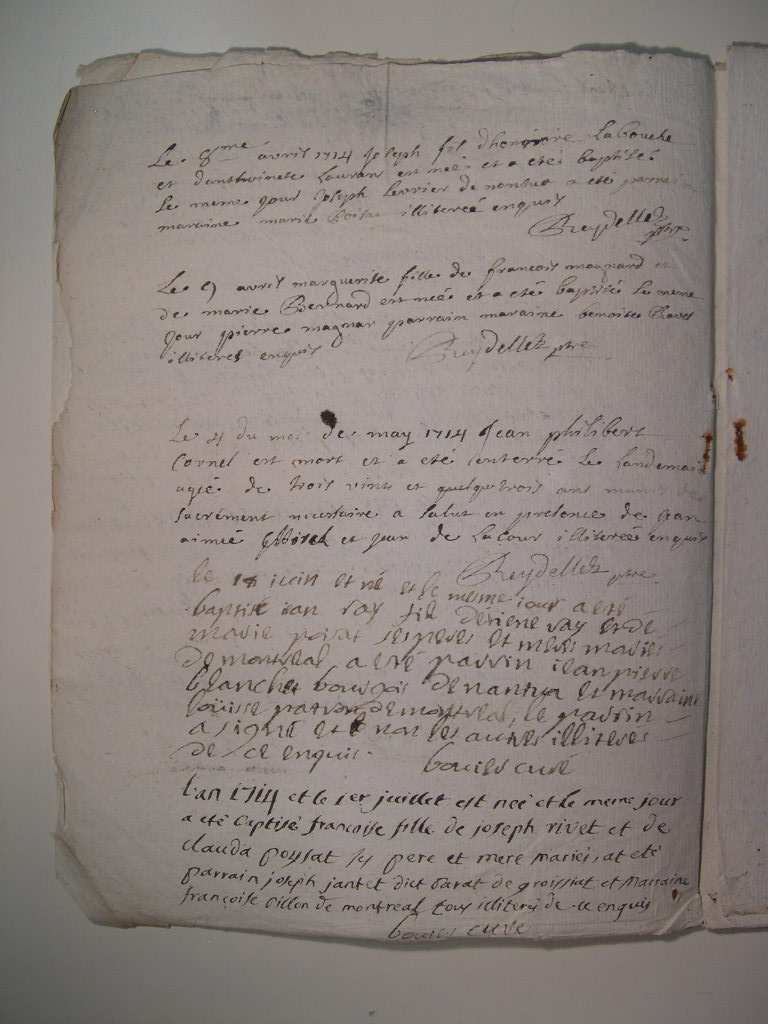 Le 8me avril 1714 Joseph fil dhonorire Labouche
et danthoinete Lauran est neé et a eté baptisés
le meme jour Joseph levrier de nantua a eté parrei
maraine marie illitereé enquis
Reydellet ptre
Le 9 avril marguerite fille de francois magnard et
de marie Bernnard est neé et a eté baptisé le meme
jour pierre magnar parrain maraine benoite Ravet
illiteres enquis Reydellet ptre
Le 21 du moi de may 1714 Jean philibert
Cornel est mort et a eté enterré le landemai
agié de trois vints et quelque trois ans muni de
sacrément necessaire a salut en presence de jan
aimeé et jean de Lacour illitereé enquis
Reydellet ptre
le 18 iuin et né et le meme iour a eté
baptisé ian ray fil detiene ray et de
marie poisat ses peres et mere maries
de montreal a eté parrin iean pierre
blanchet bourgois de nantua et marraine
louisse patron de montreal, le parrin
a signé et non les autres illiteres
de ce enquis. bouies curé
l'an 1714 et le 1er juillet est neé et le meme jour
a eté baptisé francoise fille de joseph rivet et de
clauda poysat ses pere et mere mariés, at eté
parrain joseph jantet dict barat de groissiat et Marraine
françoise pillon de montreal tous illiterés de ce enquis
bouies curé